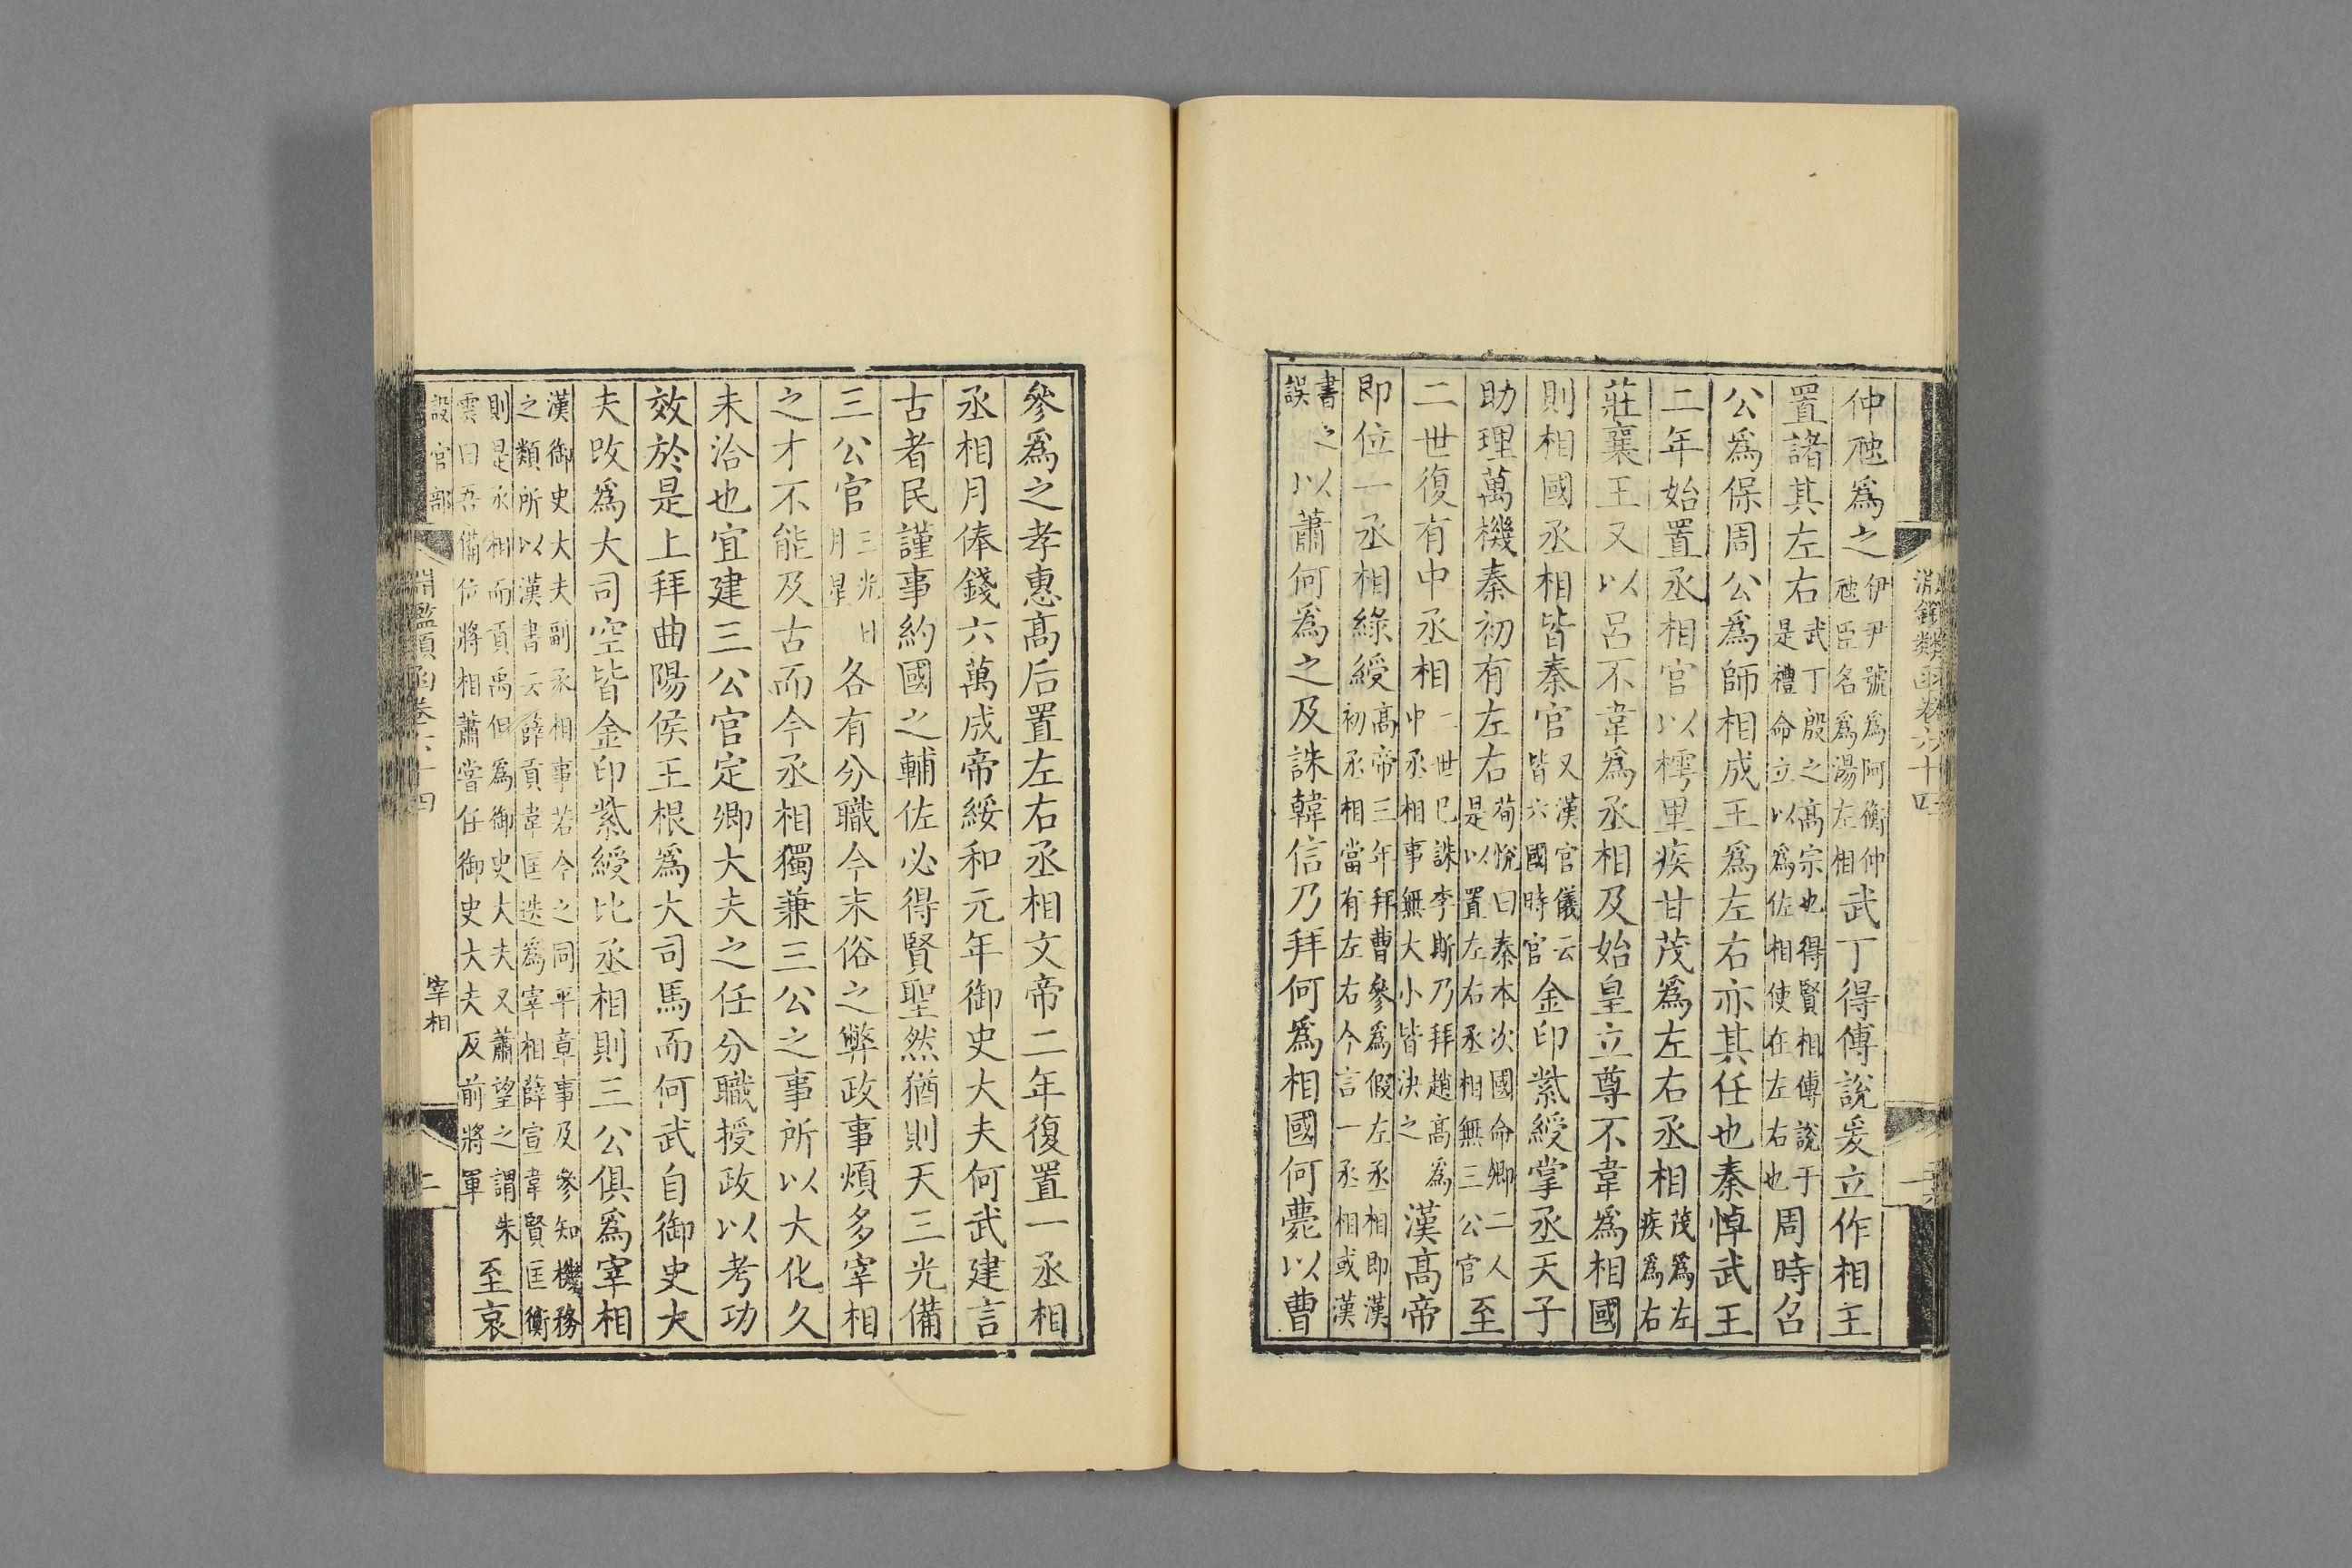 仲虺爲之伊尹號爲阿衡仲虺臣名爲湯左相武丁得傅說爰立作相王
置諸其左右武丁殷之高宗也得賢相傅說于是禮命立以爲佐相使在左右也周時召
公爲保周公爲師相成王爲左右亦其任也秦悼武王
二年始置丞相官以樗里疾甘茂爲左右丞相茂爲左疾爲右
莊襄王又以呂不韋爲丞相及始皇立尊不韋爲相國
則相國丞相皆秦官又漢官儀云皆六國時官金印紫綬掌丞天子
助理萬機秦初有左右荀悅曰秦本次國命卿二人是以置左右丞相無三公官至
二世復有中丞相二世已誅李斯乃拜趙高爲中丞相事無大小皆決之漢高帝
即位一丞相綠綬高帝三年拜曹參爲假左丞相即漢初丞相當有左右今言一丞相或漢
書之誤以蕭何爲之及誅韓信乃拜何爲相國何薨以曹
參爲之孝惠高后置左右丞相文帝二年復置一丞相
丞相月俸錢六萬成帝綏和元年御史大夫何武建言
古者民謹事約國之輔佐必得賢聖然猶則天三光備
三公官三光日月星各有分職今末俗之弊政事煩多宰相
之才不能及古而今丞相獨兼三公之事所以大化久
未洽也宜建三公官定卿大夫之任分職授政以考功
效於是上拜曲陽侯王根爲大司馬而何武自御史大
夫改爲大司空皆金印紫綬比丞相則三公俱爲宰相
漢御史大夫副丞相事若今之同平章事及參知機務之類所以漢書云薛貢韋匡迭爲宰相薛宣韋賢匡衡
則是丞相而貢禹但爲御史大夫又蕭望之謂朱雲曰吾備位將相蕭嘗任御史大夫及前將軍至哀
淵鑑類函卷六十四
設官部
宰相
二